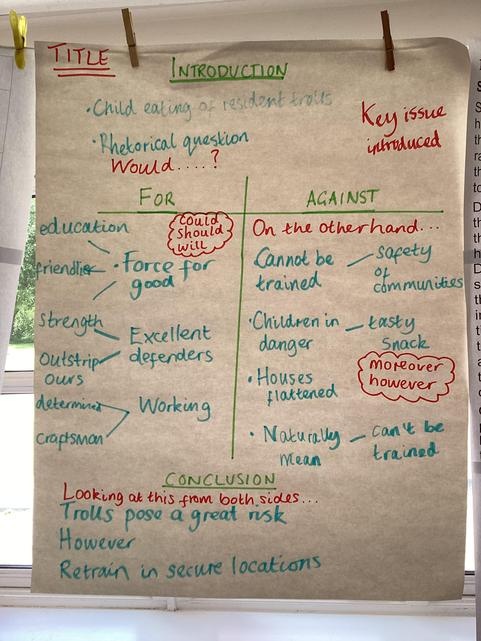 TITLE
INTRODUCTION
• Child eating of resident trolls
• Rhetorical question
Would.....?
Key issue
introduced
FOR
education
friendlier
• Force for
good
could
should
will
Strength
Outstrip
ours
Excellent
defenders
determined
craftsman
Working
AGAINST
On the other hand...
Cannot be
trained
safety
of
communities
• Children in
danger
tasty
snack
moreover
however
• Houses
flattened
• Naturally
mean
can't be
trained
CONCLUSION
Looking at this from both sides...
Trolls pose a great risk
However
Retrain in secure locations